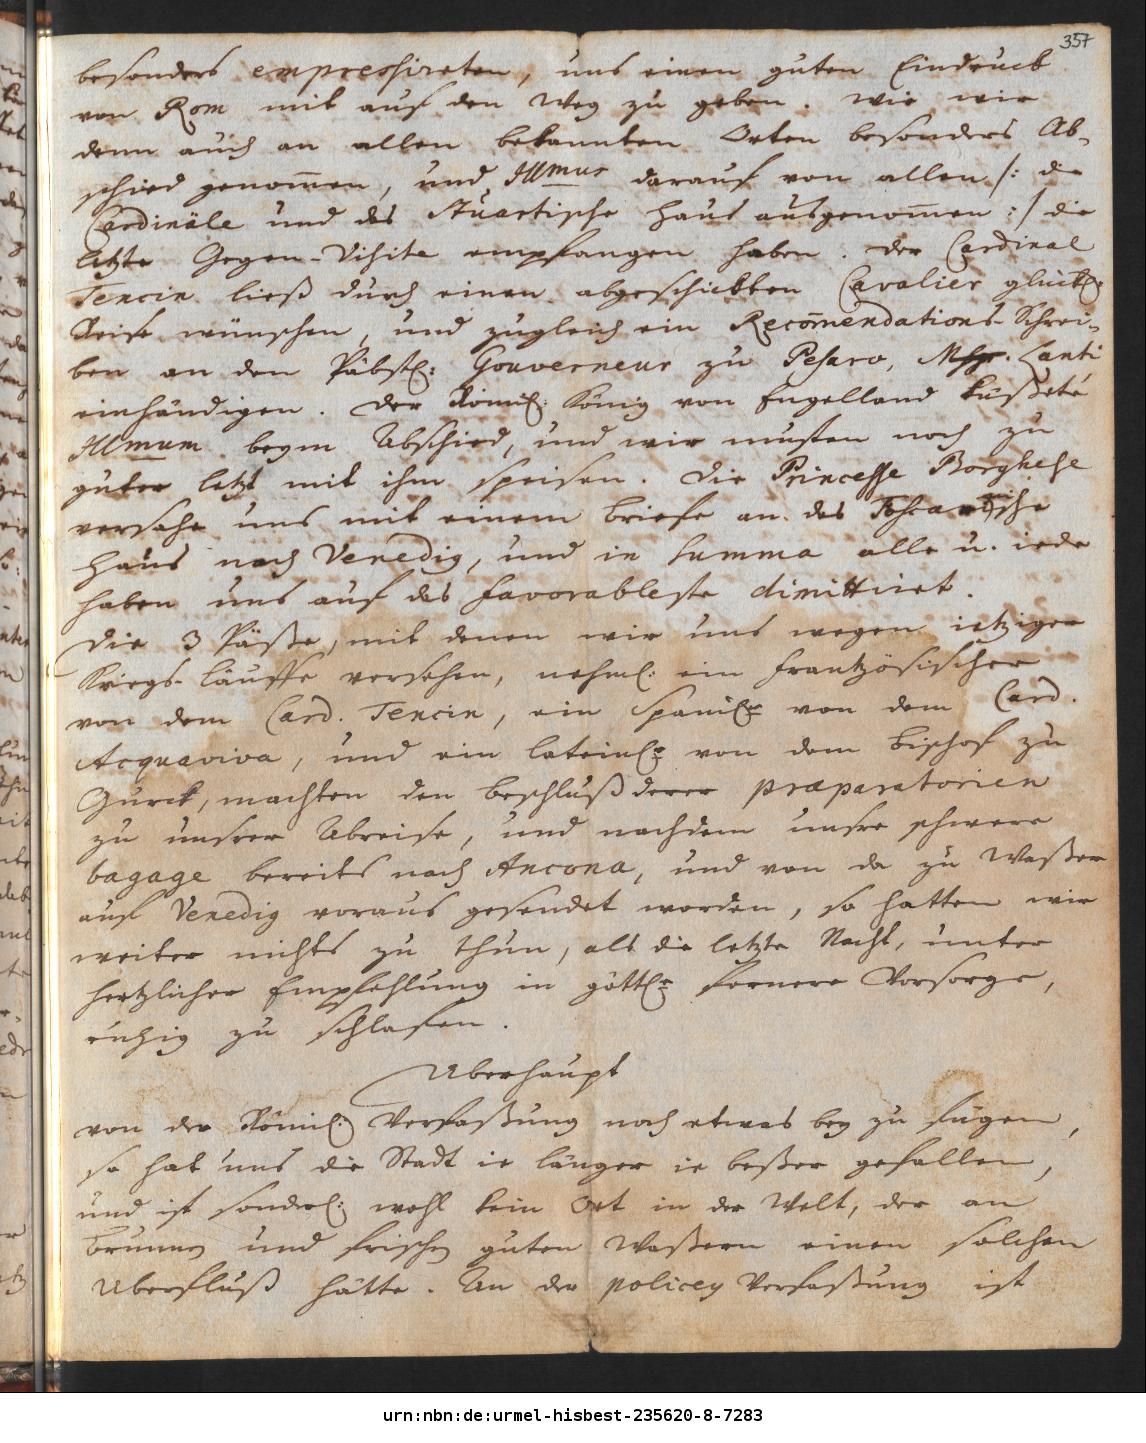 357
besonders empressireten, uns einen guten Eindruck
von Rom mit auf den Weg zu geben. Wie wir
denn auch an allen bekannten Orten besonders Ab-
schied genom̄en, und Illmus darauf von allen /: die
Cardinäle und das Stuartische Haus ausgenom̄en :/ die
letzte Gegen-Visite empfangen haben. Der Cardinal
Tencin ließ durch einen abgeschickten Cavalier glückl:
Reise wünschen, und zugleich ein Recom̄endations-Schrei-
ben an den Päbstl: Gouverneur zu Pesaro, Msgr. Lanti,
einhändigen. Der König von Engelland küßete
Illmum beym Abschied, und wir musten noch zu
guter letzt mit ihm speisen. Die Princesse Borghese
versahe uns mit einem Briefe an das
Haus nach Venedig, und in summa alle u. iede
haben uns auf das favorableste dimittiret.
Die 3 Päße, mit denen wir uns wegen ietziger
Kriegs-Läuffte versehen, nehml: ein Frantzösischer
von dem Card. Tencin, ein Spanisr von dem Card.
Acquaviva, und ein lateinsr von dem Bischof zu
Gurck, machten den Beschluß derer præparatorien
zu unsrer Abreise, und nachdem unsre schwere
bagage bereits nach Ancona, und von da zu Waßer
auf Venedig voraus gesendet worden, so hatten wir
weiter nichts zu thun, als die letzte Nacht, unter
hertzlicher Empfehlung in göttlr fernere Vorsorge,
ruhig zu schlafen.
Uberhaupt
von der Römis: Verfaßung noch etwas bey zu fügen,
so hat uns die Stadt ie länger ie beßer gefallen,
und ist sonderl: wohl kein Ort in der Welt, der an
Brunnen und frischen guten Waßern einen solchen
Uberfluß hätte. An der policey Verfaßung ist
urn:nbn:de:urmel-hisbest-235620-8-7283